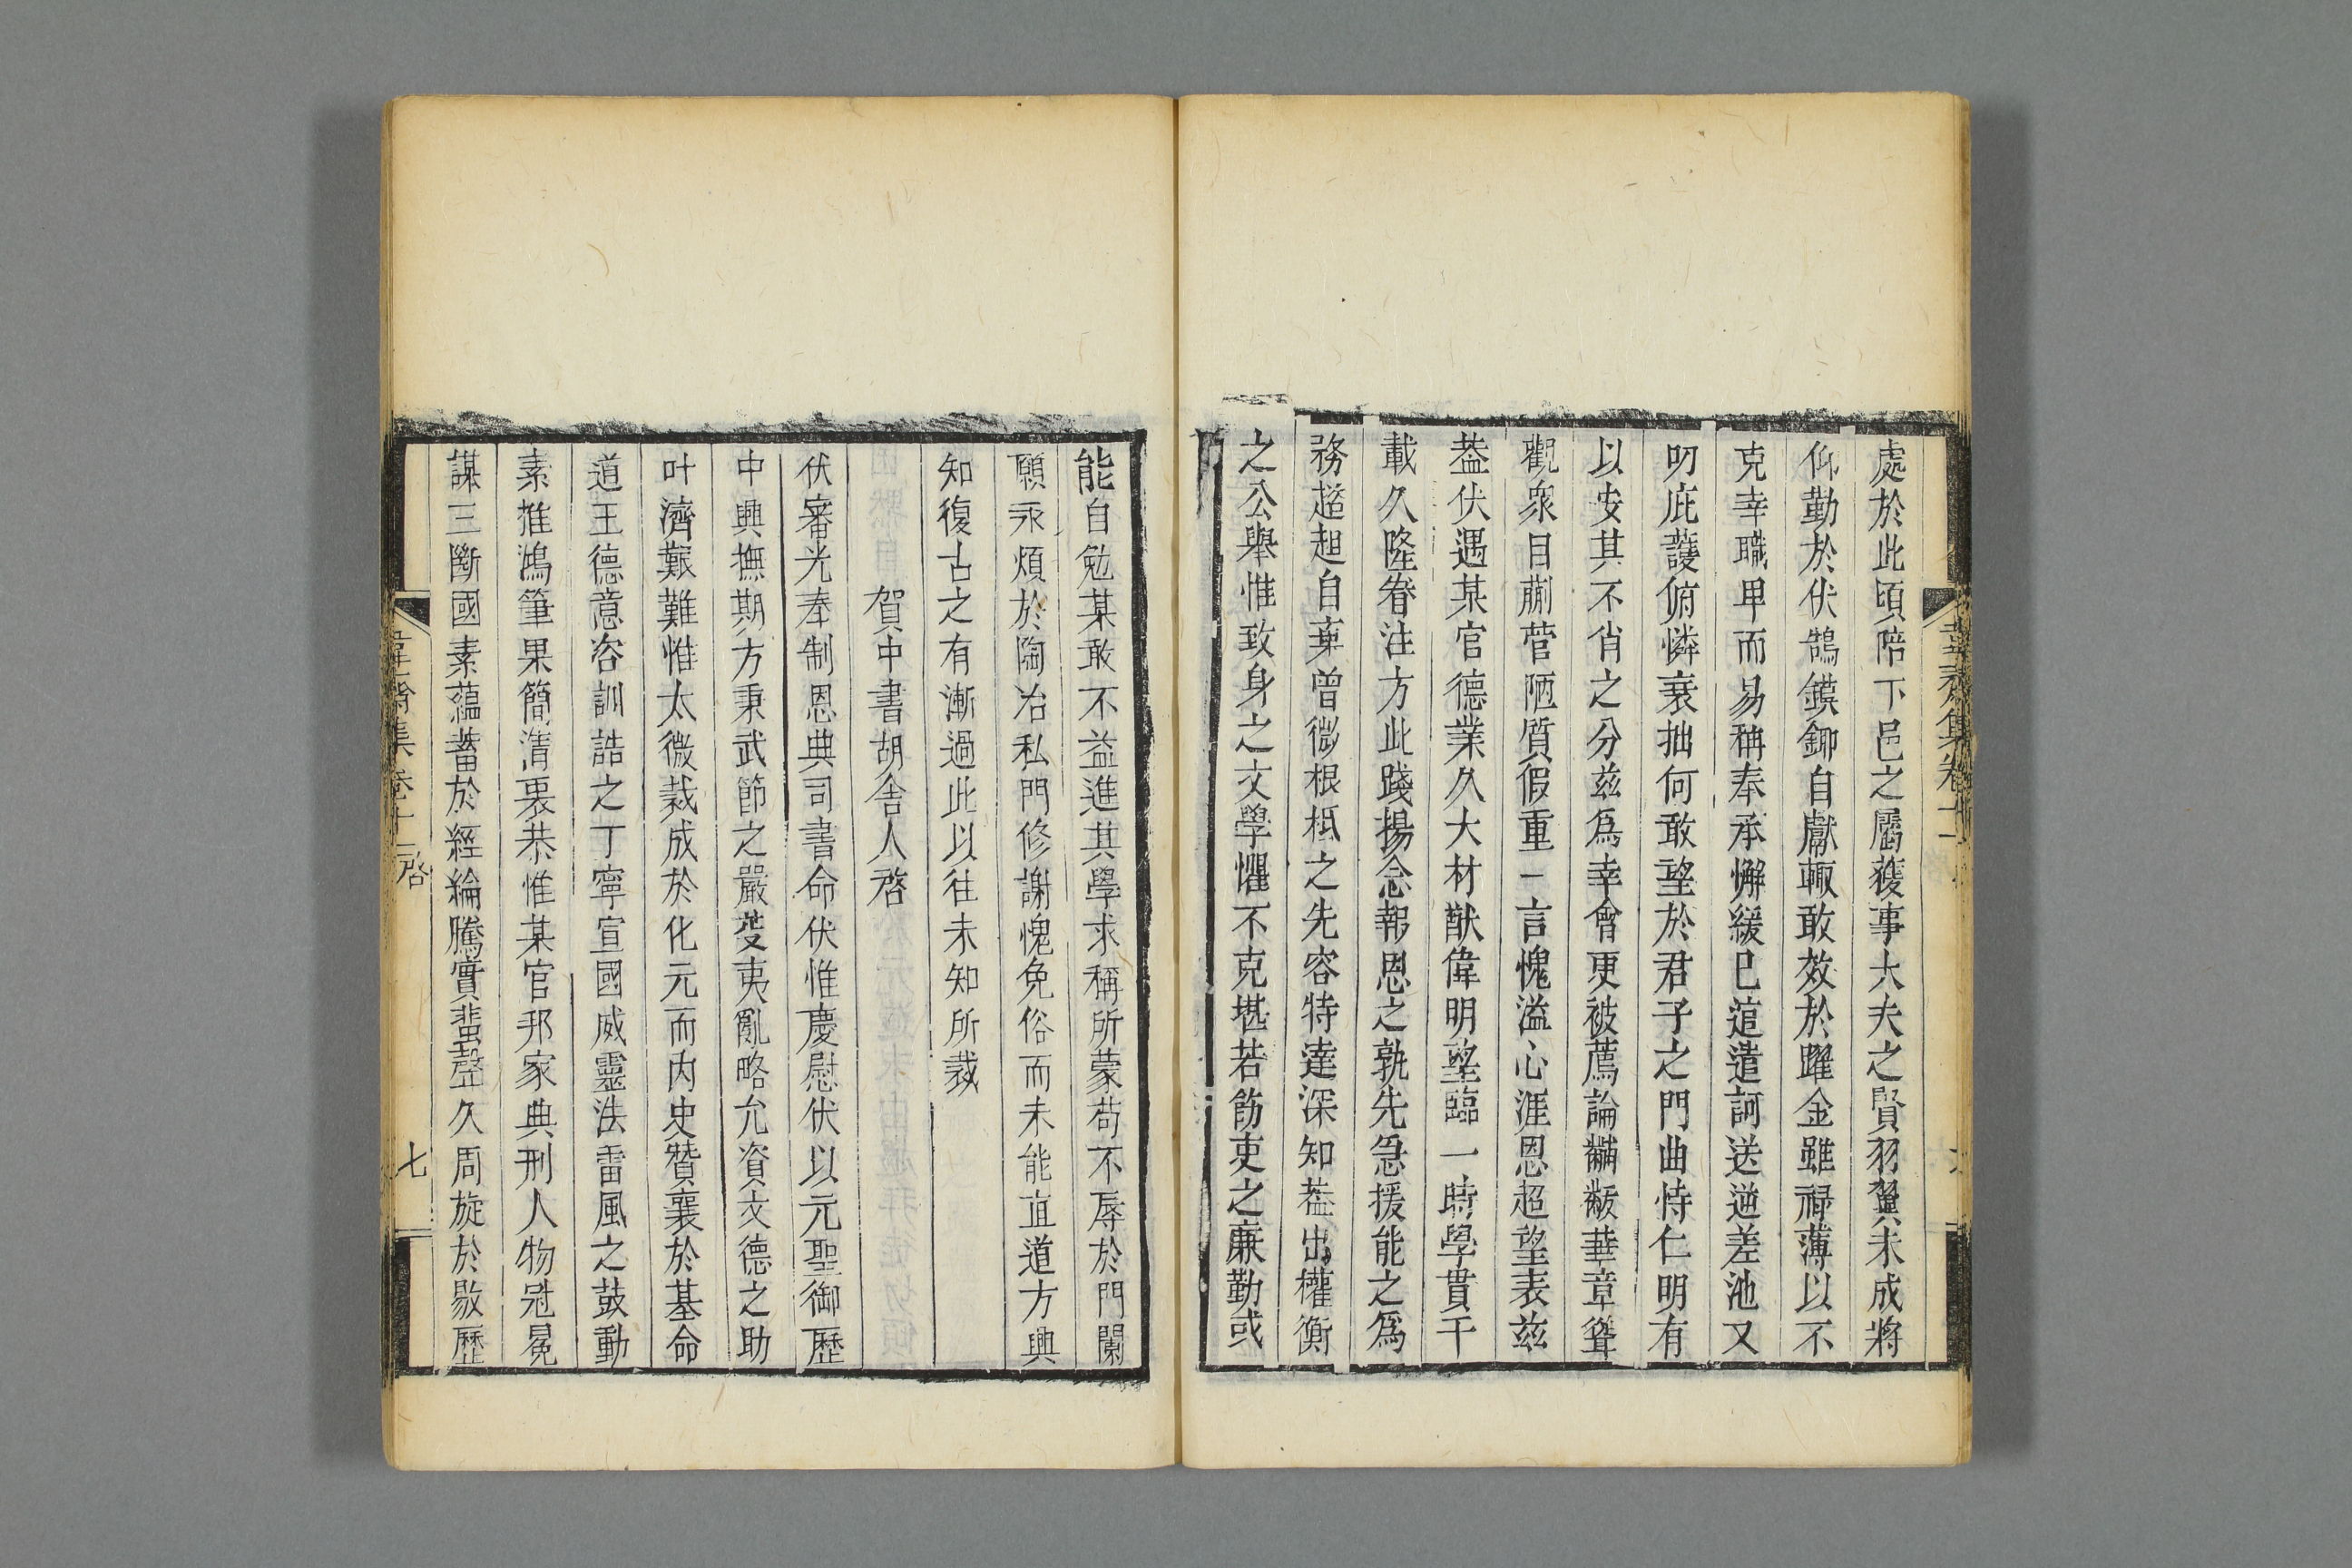 處於此頃陪下邑之屬獲事大夫之賢羽翼未成將
仰勤於伏鵠鏌鎁自獻輙敢效於躍金雖祿薄以不
克幸職卑而易稱奉承懈緩已逭遣訶送迎差池又
叨庇護俯憐衰拙何敢望於君子之門曲恃仁明有
以安其不肖之分兹爲幸會更被薦論黼黻華章聳
觀衆目蒯菅陋質假重一言愧溢心涯恩超望表兹
葢伏遇某官德業久大材猷偉明望臨一時學貫千
載久隆眷注方此踐揚念報恩之孰先急援能之爲
務趑趄自棄曾微根柢之先容特達深知葢出權衡
之公舉惟致身之文學懼不克堪若飭吏之廉勤或
韋齋集卷十一
能自勉某敢不益進其學求稱所蒙苟不辱於門闌
願永煩於陶冶私門修謝愧免俗而未能直道方興
知復古之有漸過此以往未知所裁
賀中書胡舍人啓
伏審光奉制恩典司書命伏惟慶慰伏以元聖御歷
中興撫期方秉武節之嚴芟夷亂略允資文德之助
叶濟艱難惟太微裁成於化元而内史贊襄於基命
道王德意咨訓誥之丁寧宣國威靈法雷風之鼓動
素推鴻筆果簡淸衷恭惟某官邦家典刑人物冠冕
謀三斷國素蘊蓄於經綸騰實蜚聲久周旋於敭歷
韋齋集卷十一 啓
七